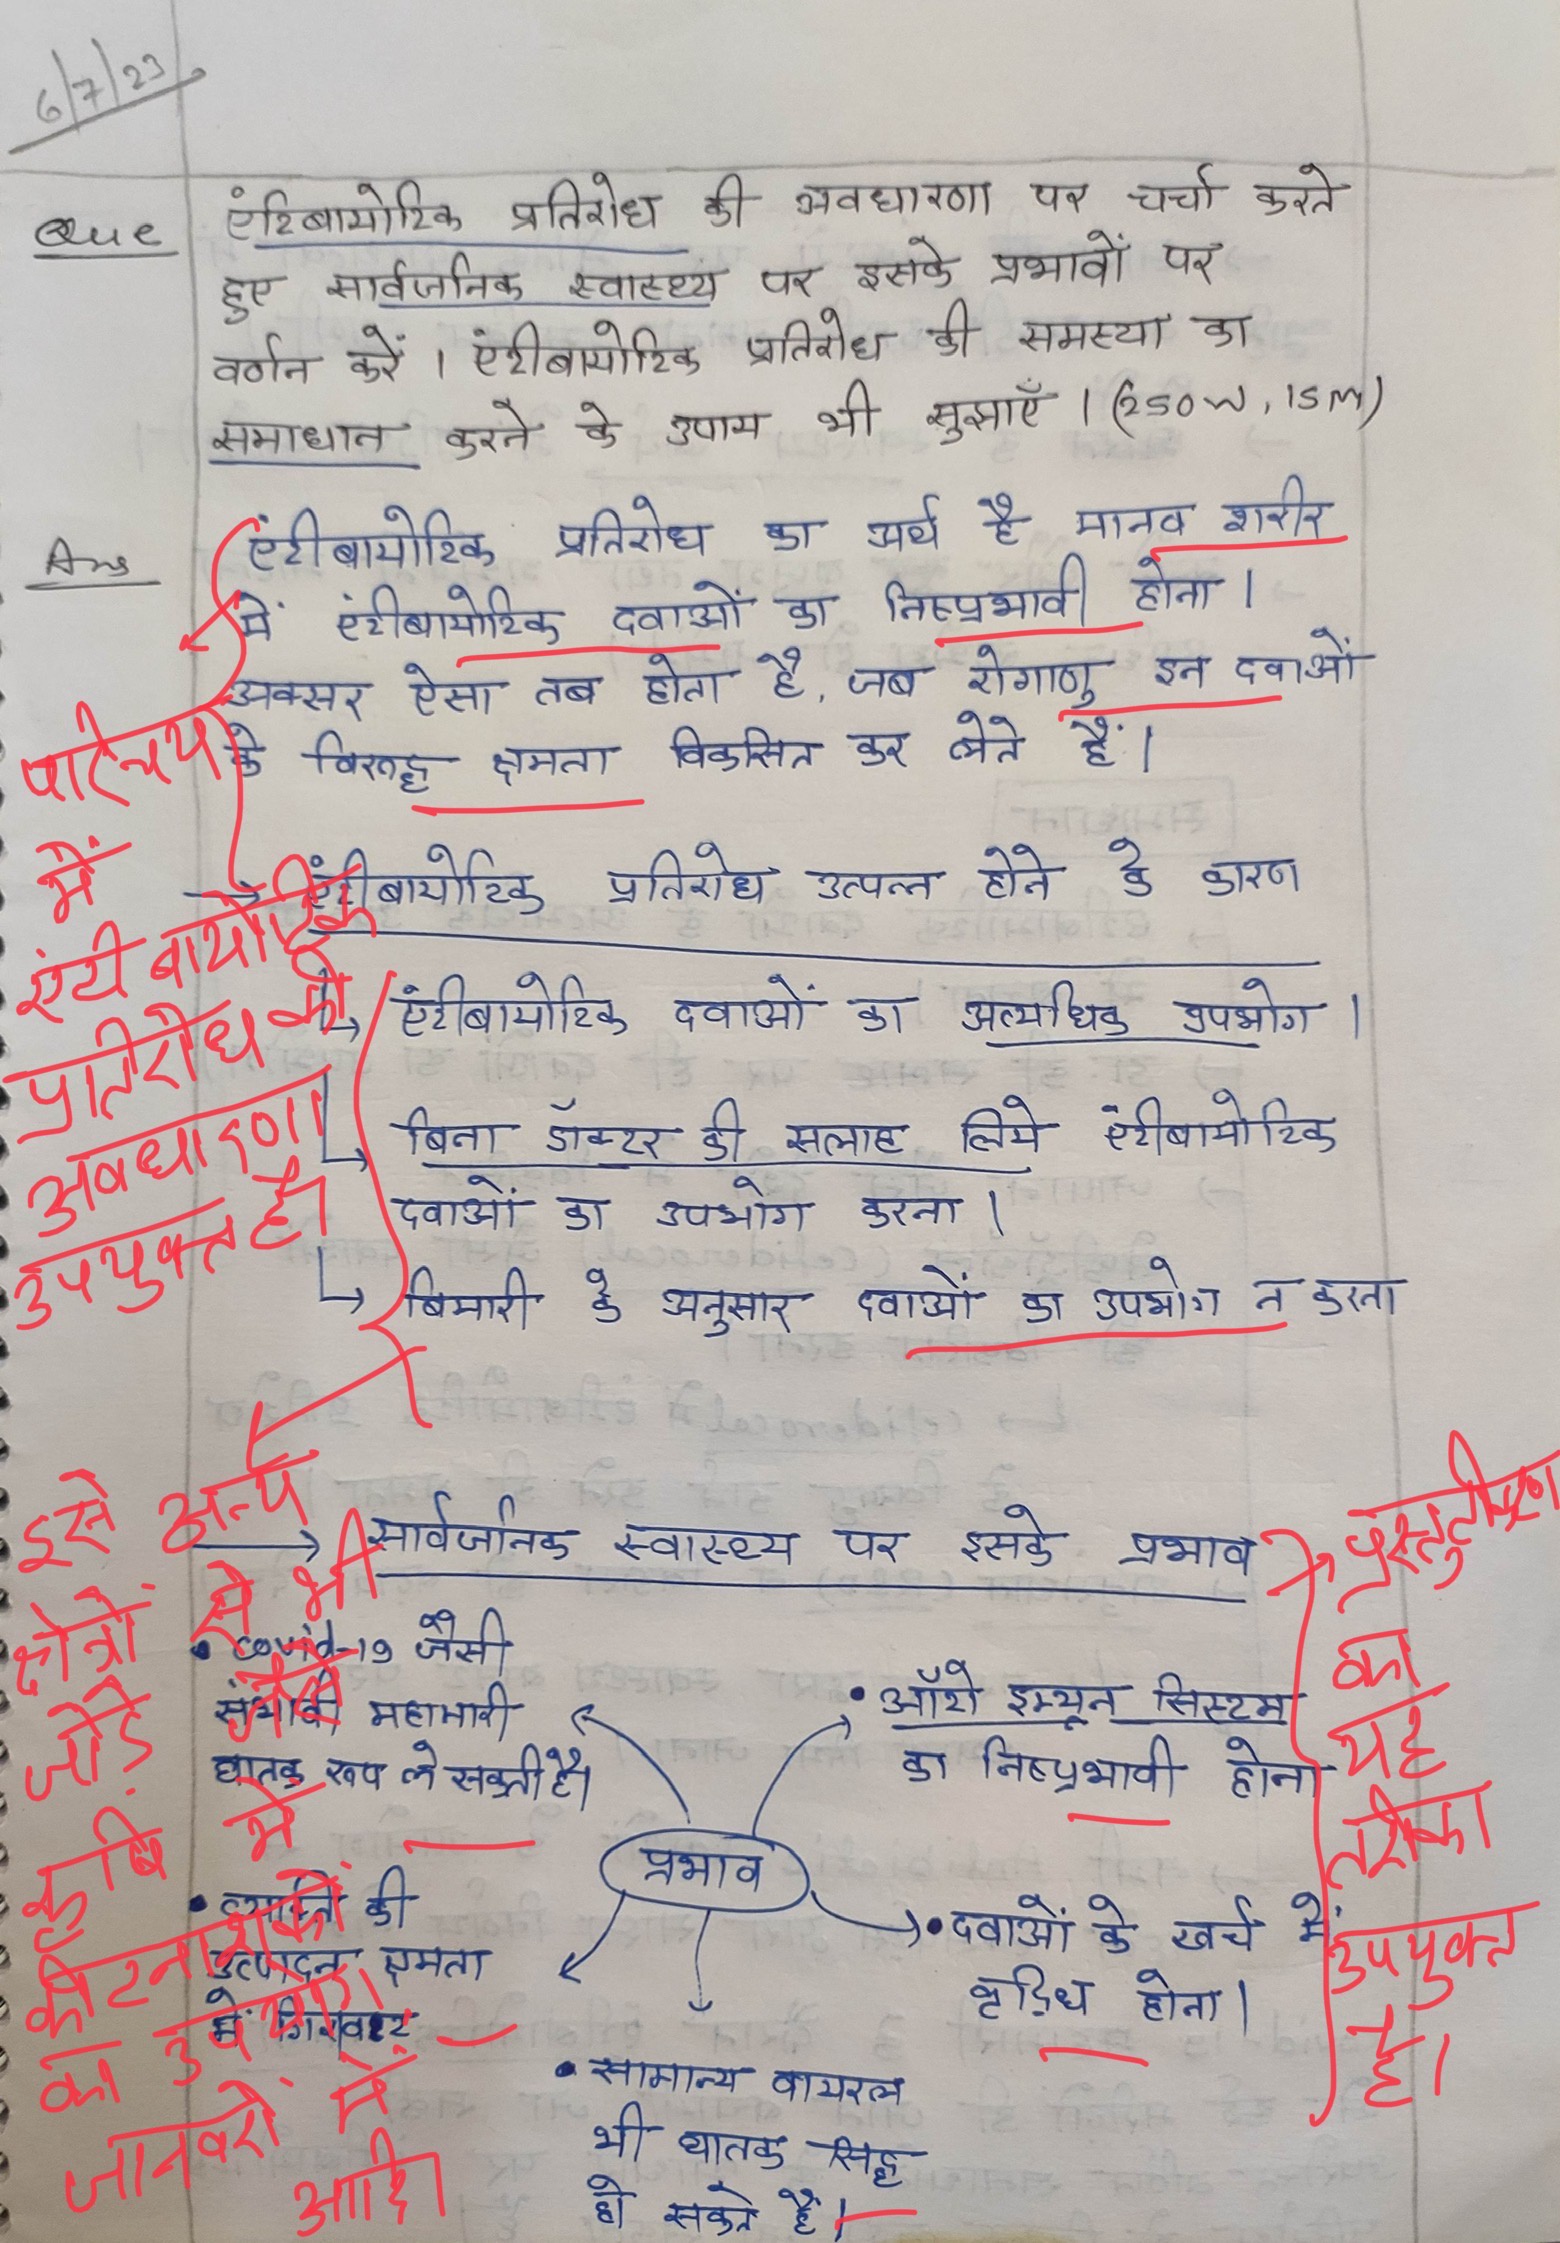 6/7/23
Que एंटिबायोटिक प्रतिरोध की अवधारणा पर चर्चा करते
हुए सार्वजनिक स्वास्थ्य पर इसके प्रभावों पर
वर्णन करें । एंटीबायोटिक प्रतिरोध की समस्या का
समाधान करने के उपाय भी सुझाएँ । (250W, 15M)
Ans एंटीबायोटिक प्रतिरोध का अर्थ है मानव शरीर
में एंटीबायोटिक दवाओं का निष्प्रभावी होना ।
अक्सर ऐसा तब होता है, जब रोगाणु इन दवाओं
के विरूद्ध क्षमता विकसित कर लेते हैं ।
→ एंटीबायोटिक प्रतिरोध उत्पन्न होने के कारण
↳ एंटीबायोटिक दवाओं का अत्यधिक उपभोग ।
↳ बिना डॉक्टर की सलाह लिये एंटीबायोटिक
दवाओं का उपभोग करना ।
↳ बिमारी के अनुसार दवाओं का उपभोग न करना
परिचय
में
एंटीबायोटिक
प्रतिरोध की
अवधारणा
उपयुक्त है।
→ सार्वजनिक स्वास्थ्य पर इसके प्रभाव
• covid-19 जैसी
संभावी महामारी
घातक रूप ले सकती है।
• ऑटो इम्यून सिस्टम
का निष्प्रभावी होना
प्रभाव
• व्यक्ति की
उत्पादन क्षमता
में गिरावट
• दवाओं के खर्च में
वृद्धि होना ।
• सामान्य वायरल
भी घातक सिद्ध
हो सकते हैं ।
इसे अन्य
क्षेत्रों से भी
जोड़ें जैसे
कृषि में
कीटनाशकों
का उपयोग।
जानवरों में
आदि।
प्रस्तुतीकरण
का
यह
तरीका
उपयुक्त
है।